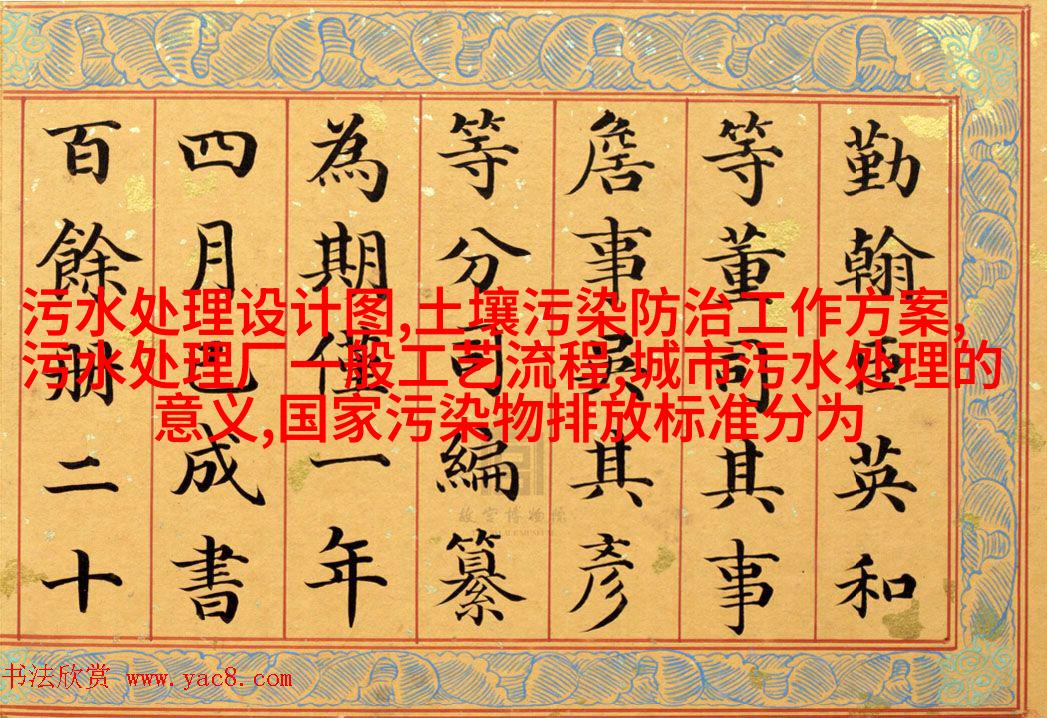 勤翰臣英和
等董司其事
詹事吳其彥
等分司編纂
為期僅一年
四月已成書
百餘冊二十
污水处理设计图,土壤污染防治工作方案,
污水处理厂一般工艺流程,城市污水处理的
意义,国家污染物排放标准分为
故宫博物院
书法欣赏 www.yac8.com